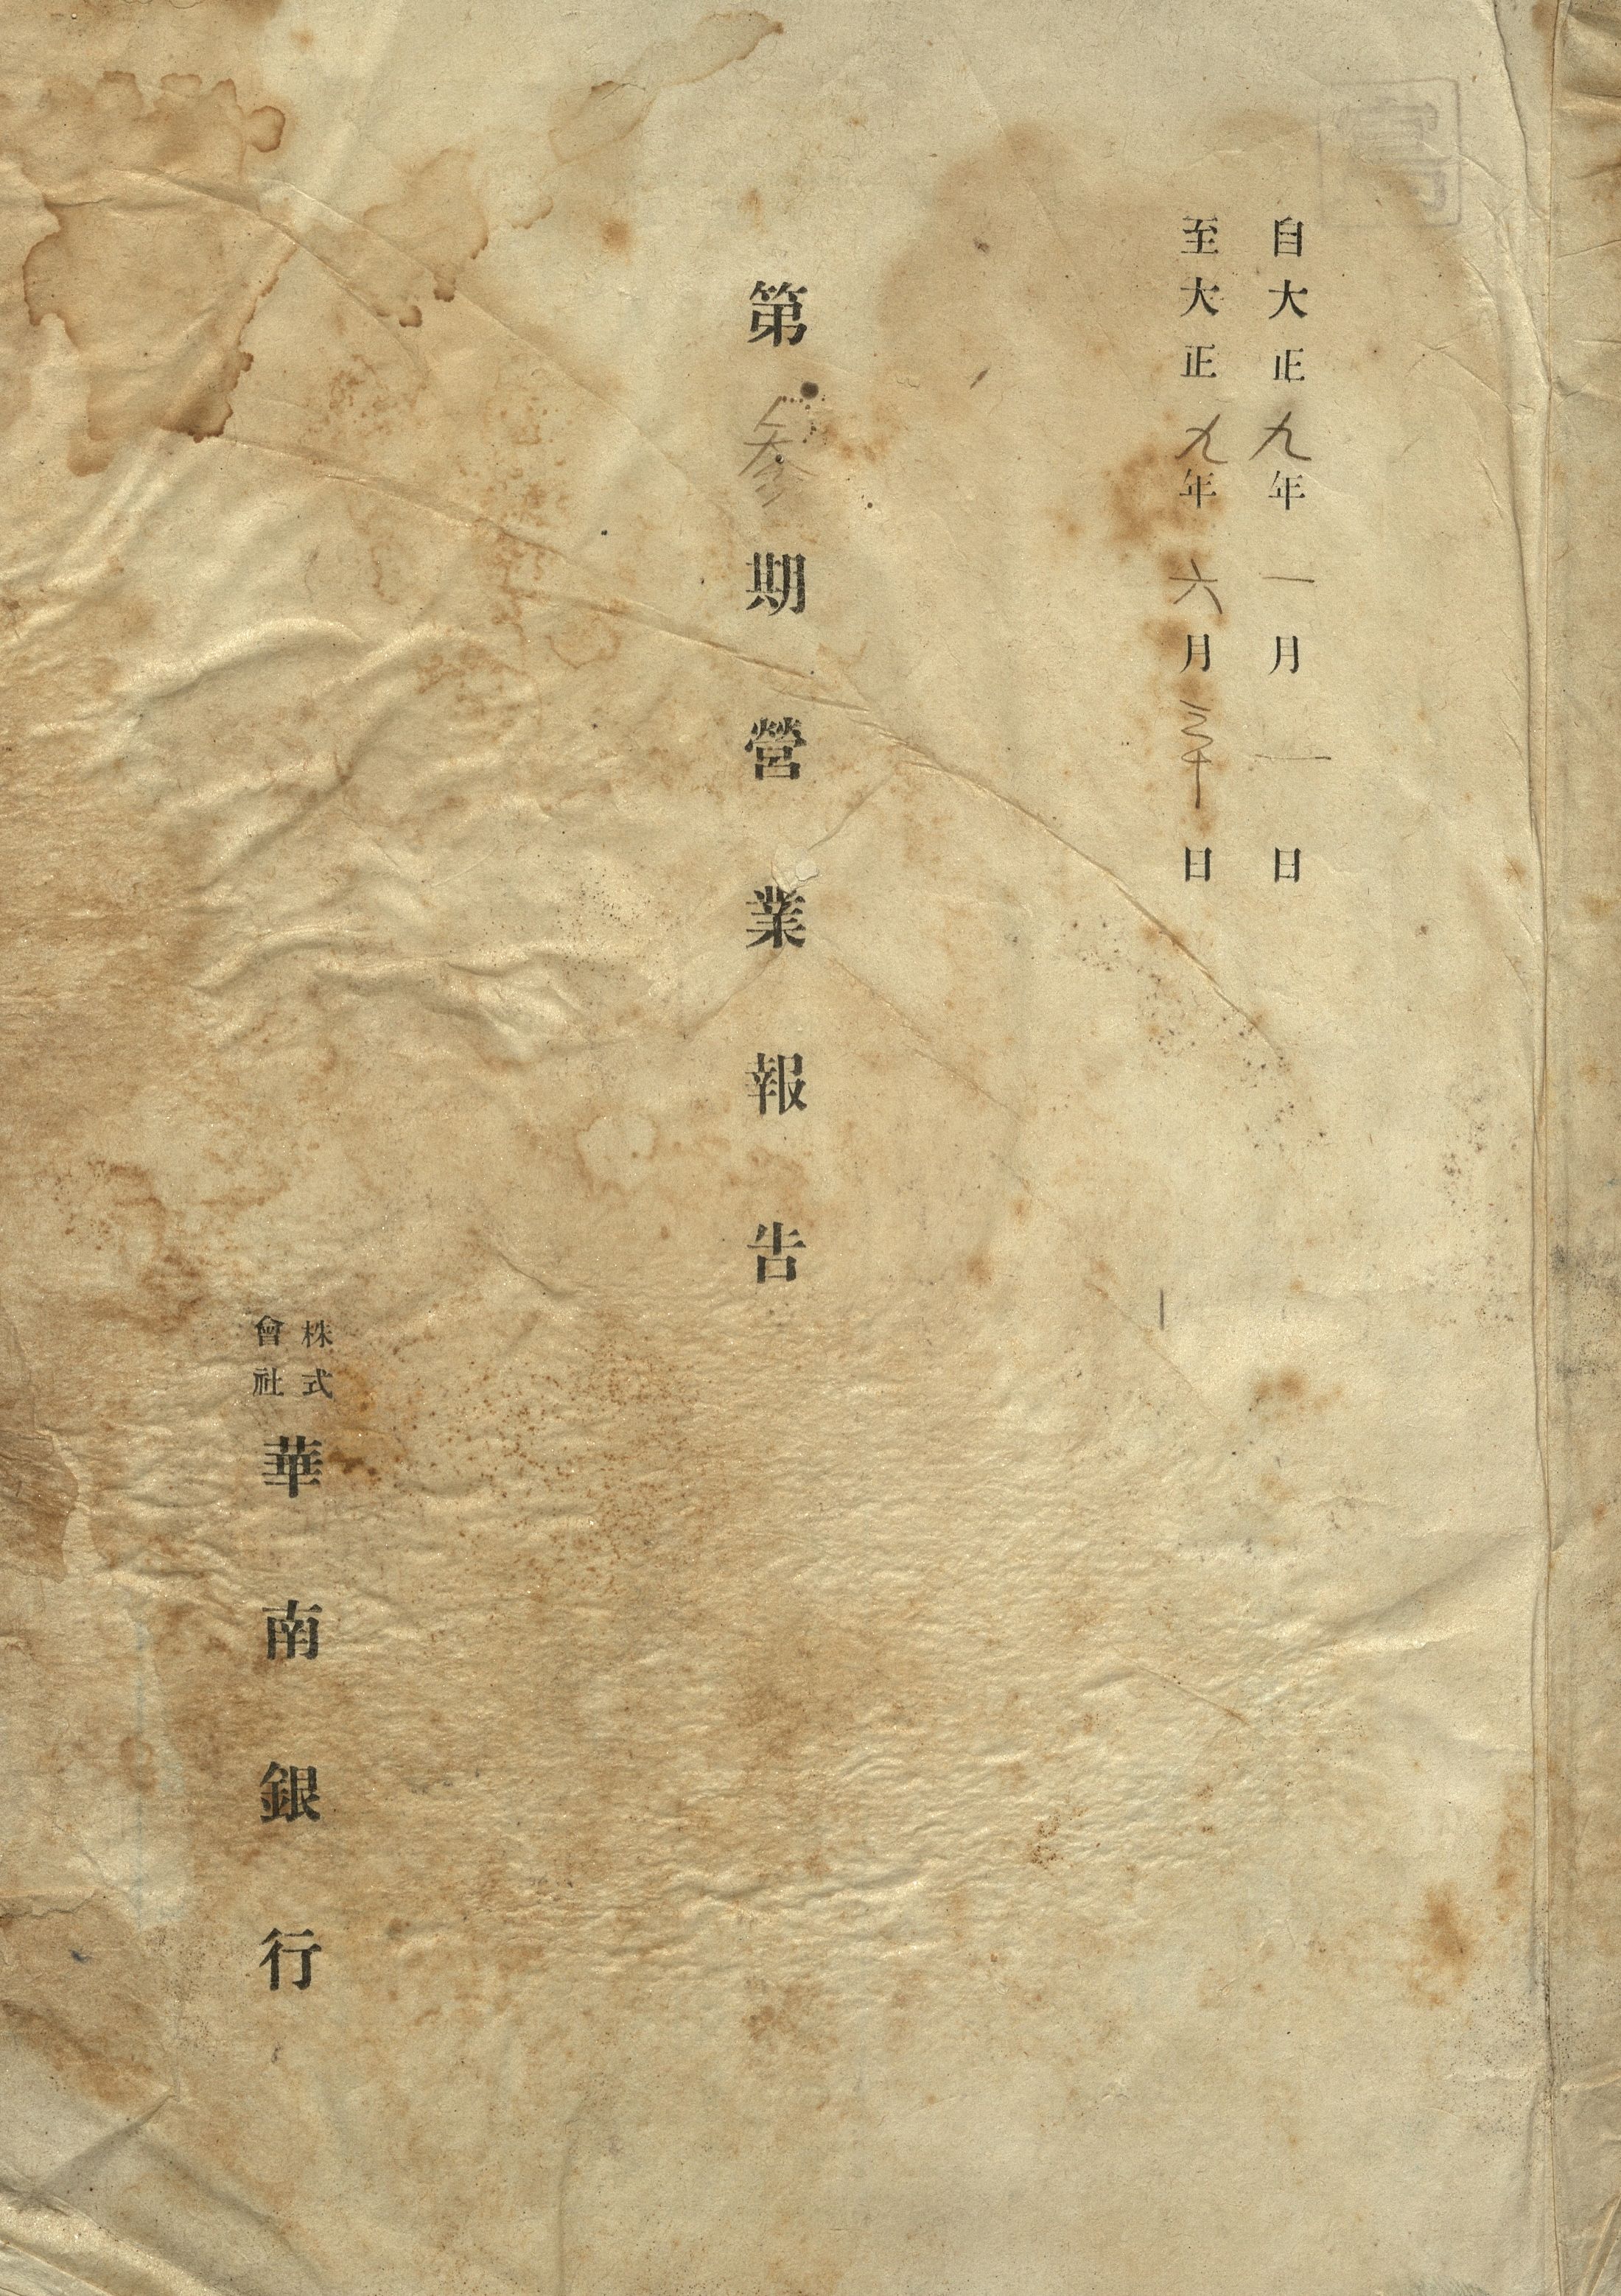 寫
自大正九年一月一日
至大正九年六月三十日
第參期營業報告
株式
會社
華南銀行